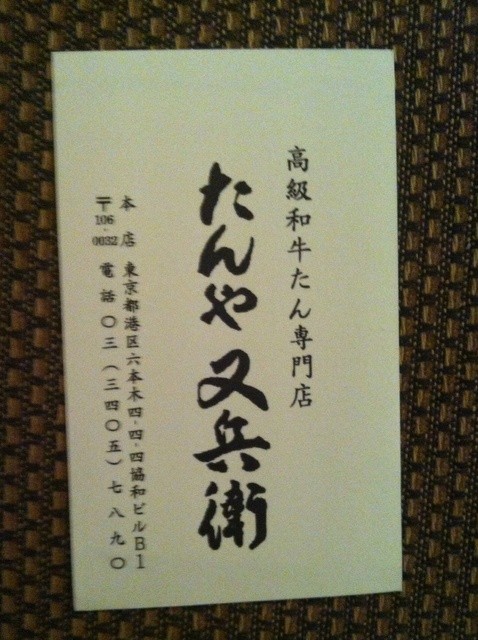 高級和牛たん専門店
たんや又兵衛
本店 東京都港区六本木四-四-四協和ビルB1
〒106-0032 電話〇三(三四〇五)七八九〇